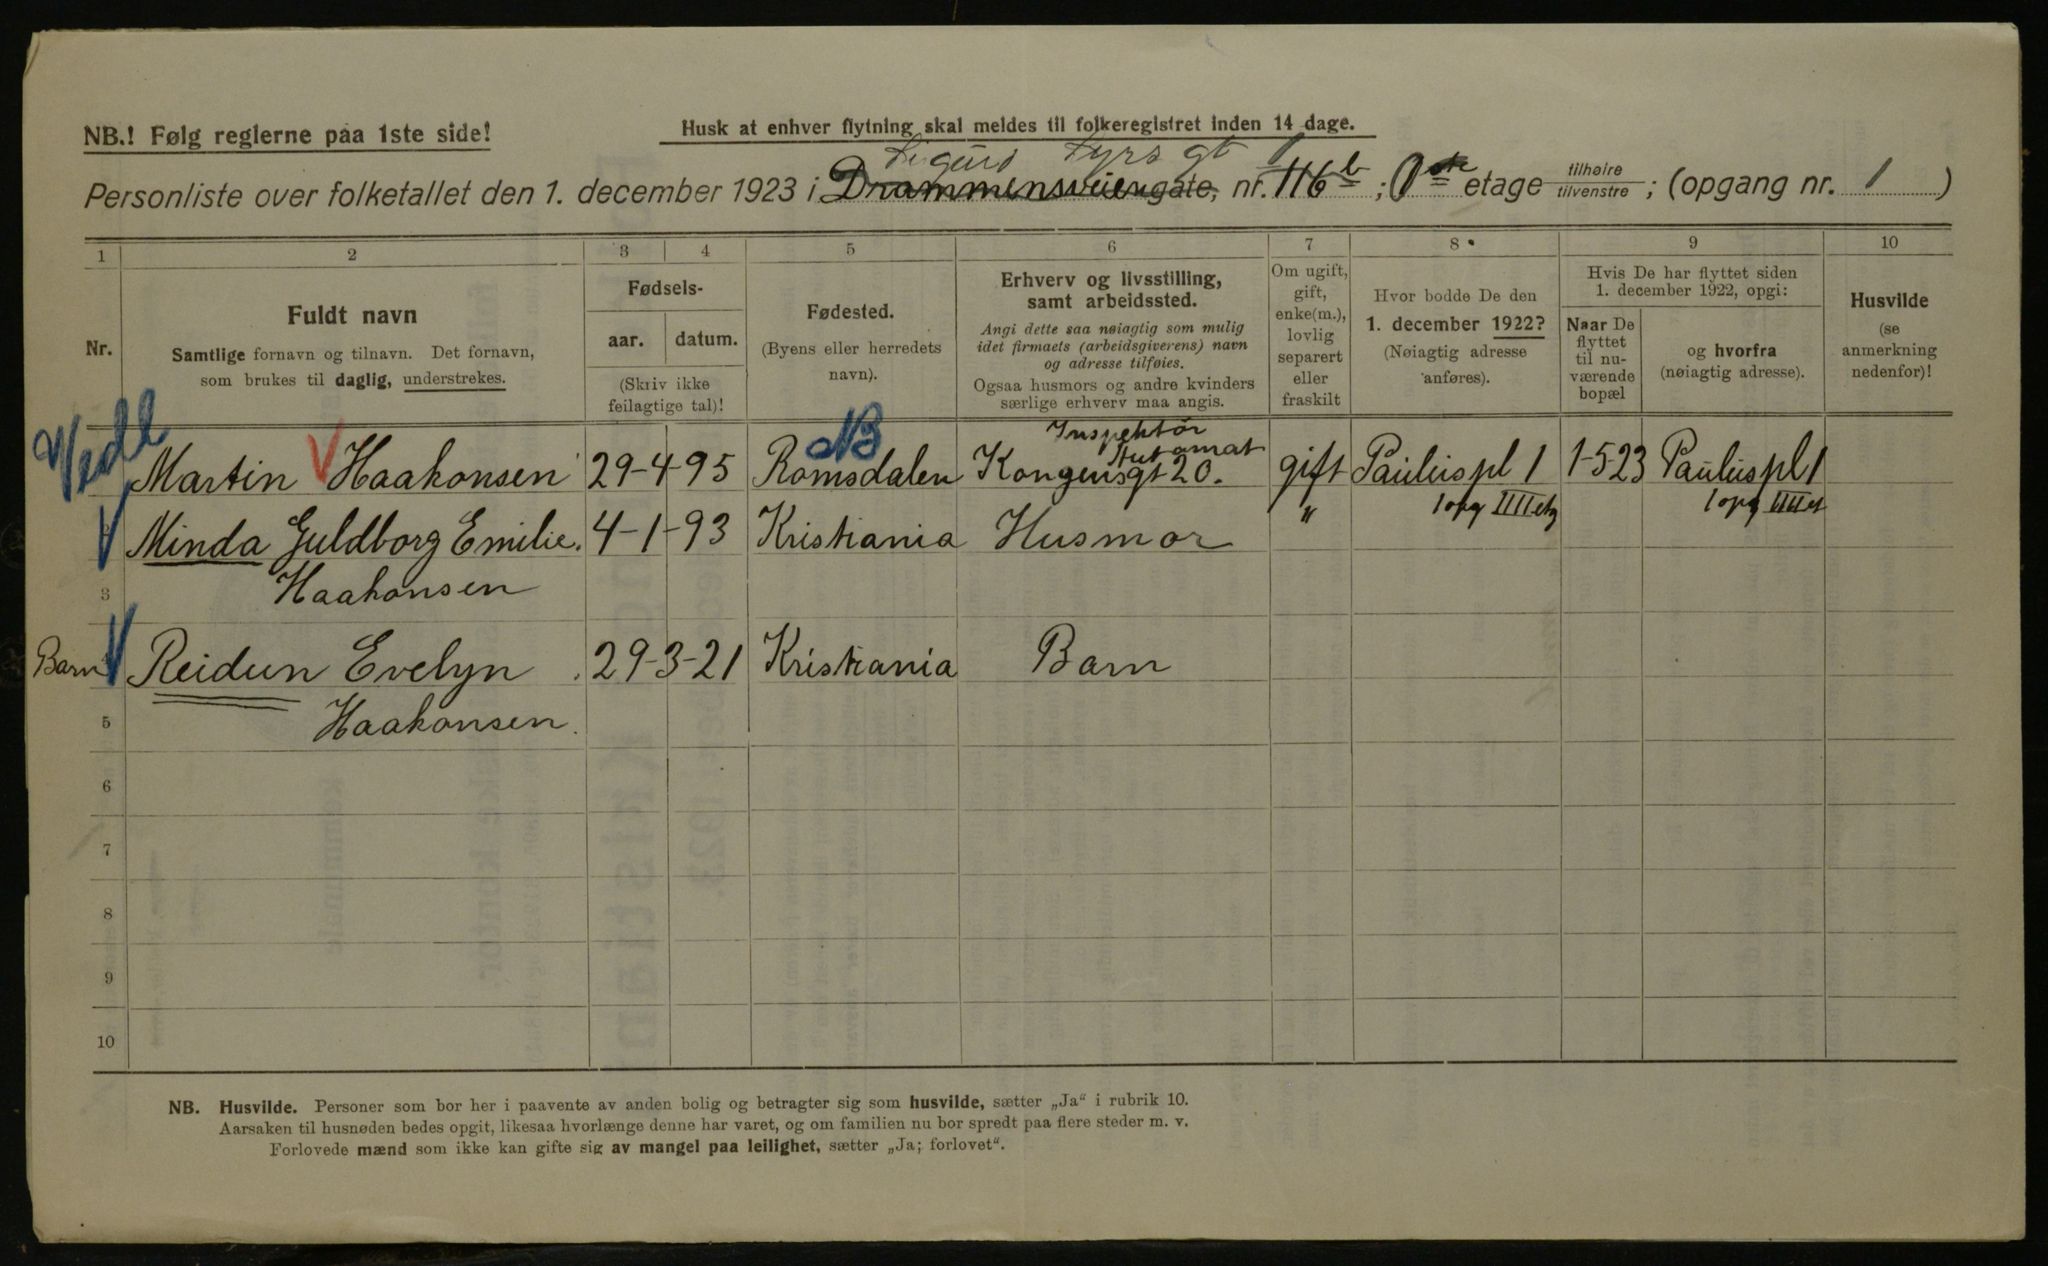 NB.! Følg reglerne paa 1ste side!
Husk at enhver flytning skal meldes til folkeregistret inden 14 dage.
Sigurd Syrs gt 1
Personliste over folketallet den 1. december 1923 i Drammensveien gate, nr. 116b ; 1ste etage tilhøire tilvenstre ; (opgang nr. 1 )
1 2 3 4 5 6 7 8 9 10
Nr.
Fuldt navn
Samtlige fornavn og tilnavn. Det fornavn,
som brukes til daglig, understrekes.
Fødsels-
aar. datum.
(Skriv ikke
feilagtige tal)!
Fødested.
(Byens eller herredets
navn).
Erhverv og livsstilling,
samt arbeidssted.
Angi dette saa nøiagtig som mulig
idet firmaets (arbeidsgiverens) navn
og adresse tilføies.
Ogsaa husmors og andre kvinders
særlige erhverv maa angis.
Om ugift,
gift,
enke(m.),
lovlig
separert
eller
fraskilt
Hvor bodde De den
1. december 1922?
(Nøiagtig adresse
anføres).
Hvis De har flyttet siden
1. december 1922, opgi:
Naar De
flyttet
til nu-
værende
bopæl
og hvorfra
(nøiagtig adresse).
Husvilde
(se
anmerkning
nedenfor)!
Vedl
NB
Inspektør
Automat
Martin V Haakonsen 29-4-95 Romsdalen Kongensgt 20. gift Paulus pl 1 1-5-23 Paulus pl 1
1 opg IIII etg 1 opg IIII et
V Minda Guldborg Emilie. 4-1-93 Kristiania Husmor "
3 Haakonsen
Barn V Reidun Evelyn 29-3-21 Kristiania Barn
5 Haakonsen.
6
7
8
9
10
NB. Husvilde. Personer som bor her i paavente av anden bolig og betragter sig som husvilde, sætter „Ja" i rubrik 10.
Aarsaken til husnøden bedes opgit, likesaa hvorlænge denne har varet, og om familien nu bor spredt paa flere steder m. v.
Forlovede mænd som ikke kan gifte sig av mangel paa leilighet, sætter „Ja; forlovet".